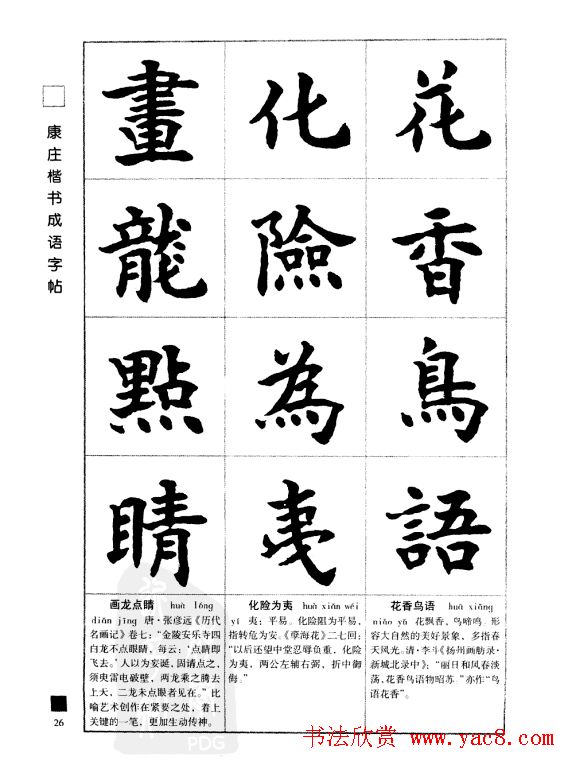 花香鳥語
化險為夷
畫龍點睛
康庄楷书成语字帖
花香鸟语 huā xiāng
niǎo yǔ 花飘香，鸟啼鸣。形
容大自然的美好景象，多指春
天风光。清·李斗《扬州画舫录·
新城北录中》：“丽日和风春淡
荡，花香鸟语物昭苏。”亦作“鸟
语花香”。
化险为夷 huà xiǎn wéi
yí 夷：平易。化险阻为平易，
指转危为安。《孽海花》二七回：
“以后还望中堂忍辱负重，化险
为夷，两公左辅右弼，折中御
侮。”
画龙点睛 huà lóng
diǎn jīng 唐·张彦远《历代
名画记》卷七：“金陵安乐寺四
白龙不点眼睛，每云：‘点睛即
飞去。’人以为妄诞，固请点之，
须臾雷电破壁，两龙乘之腾去
上天，二龙未点眼者见在。”比
喻艺术创作在紧要之处，着上
关键的一笔，更加生动传神。
26
PDG
书法欣赏 www.yac8.com